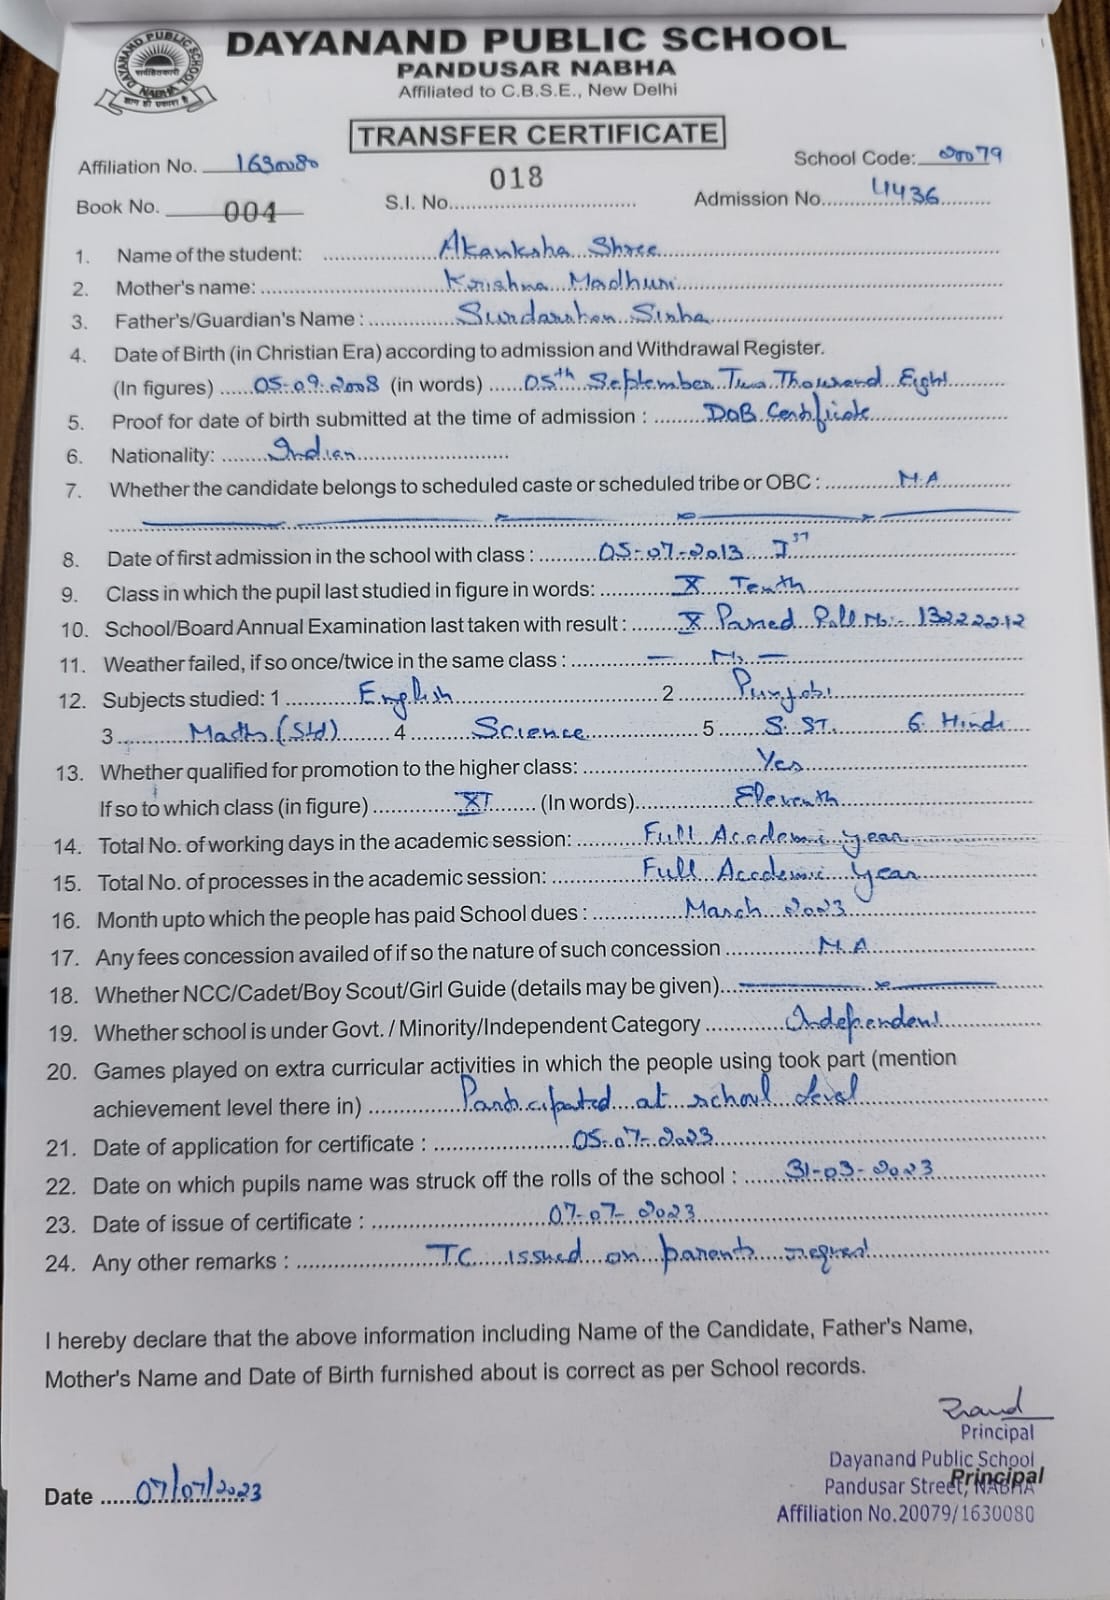 DAYANAND PUBLIC SCHOOL
PANDUSAR NABHA
Affiliated to C.B.S.E., New Delhi
TRANSFER CERTIFICATE
Affiliation No. 1630080 School Code: 20079
Book No. 004 S.I. No. 018 Admission No. 4436
1. Name of the student: Akanksha Shree
2. Mother's name: Krishna Madhuri
3. Father's/Guardian's Name : Surdarshan Sinha
4. Date of Birth (in Christian Era) according to admission and Withdrawal Register.
(In figures) 05-09-2008 (in words) 05th September Two Thousand Eight
5. Proof for date of birth submitted at the time of admission : DOB Certificate
6. Nationality: Indian
7. Whether the candidate belongs to scheduled caste or scheduled tribe or OBC : N.A
8. Date of first admission in the school with class : 05-07-2013 Ist
9. Class in which the pupil last studied in figure in words: X Tenth
10. School/Board Annual Examination last taken with result : X Passed Roll No:- 13222212
11. Weather failed, if so once/twice in the same class : — No —
12. Subjects studied: 1 English 2 Punjabi
3 Maths (Std) 4 Science 5 S. ST. 6. Hindi
13. Whether qualified for promotion to the higher class: Yes
If so to which class (in figure) XI (In words) Eleventh
14. Total No. of working days in the academic session: Full Academic year
15. Total No. of processes in the academic session: Full Academic year
16. Month upto which the people has paid School dues : March 2023
17. Any fees concession availed of if so the nature of such concession N.A
18. Whether NCC/Cadet/Boy Scout/Girl Guide (details may be given)
19. Whether school is under Govt. / Minority/Independent Category Independent
20. Games played on extra curricular activities in which the people using took part (mention
achievement level there in) Participated at school level
21. Date of application for certificate : 05-07-2023
22. Date on which pupils name was struck off the rolls of the school : 31-03-2023
23. Date of issue of certificate : 07-07-2023
24. Any other remarks : TC issued on parents request
I hereby declare that the above information including Name of the Candidate, Father's Name,
Mother's Name and Date of Birth furnished about is correct as per School records.
Principal
Dayanand Public School
Principal
Pandusar Street, NABHA
Date 07/07/2023
Affiliation No.20079/1630080